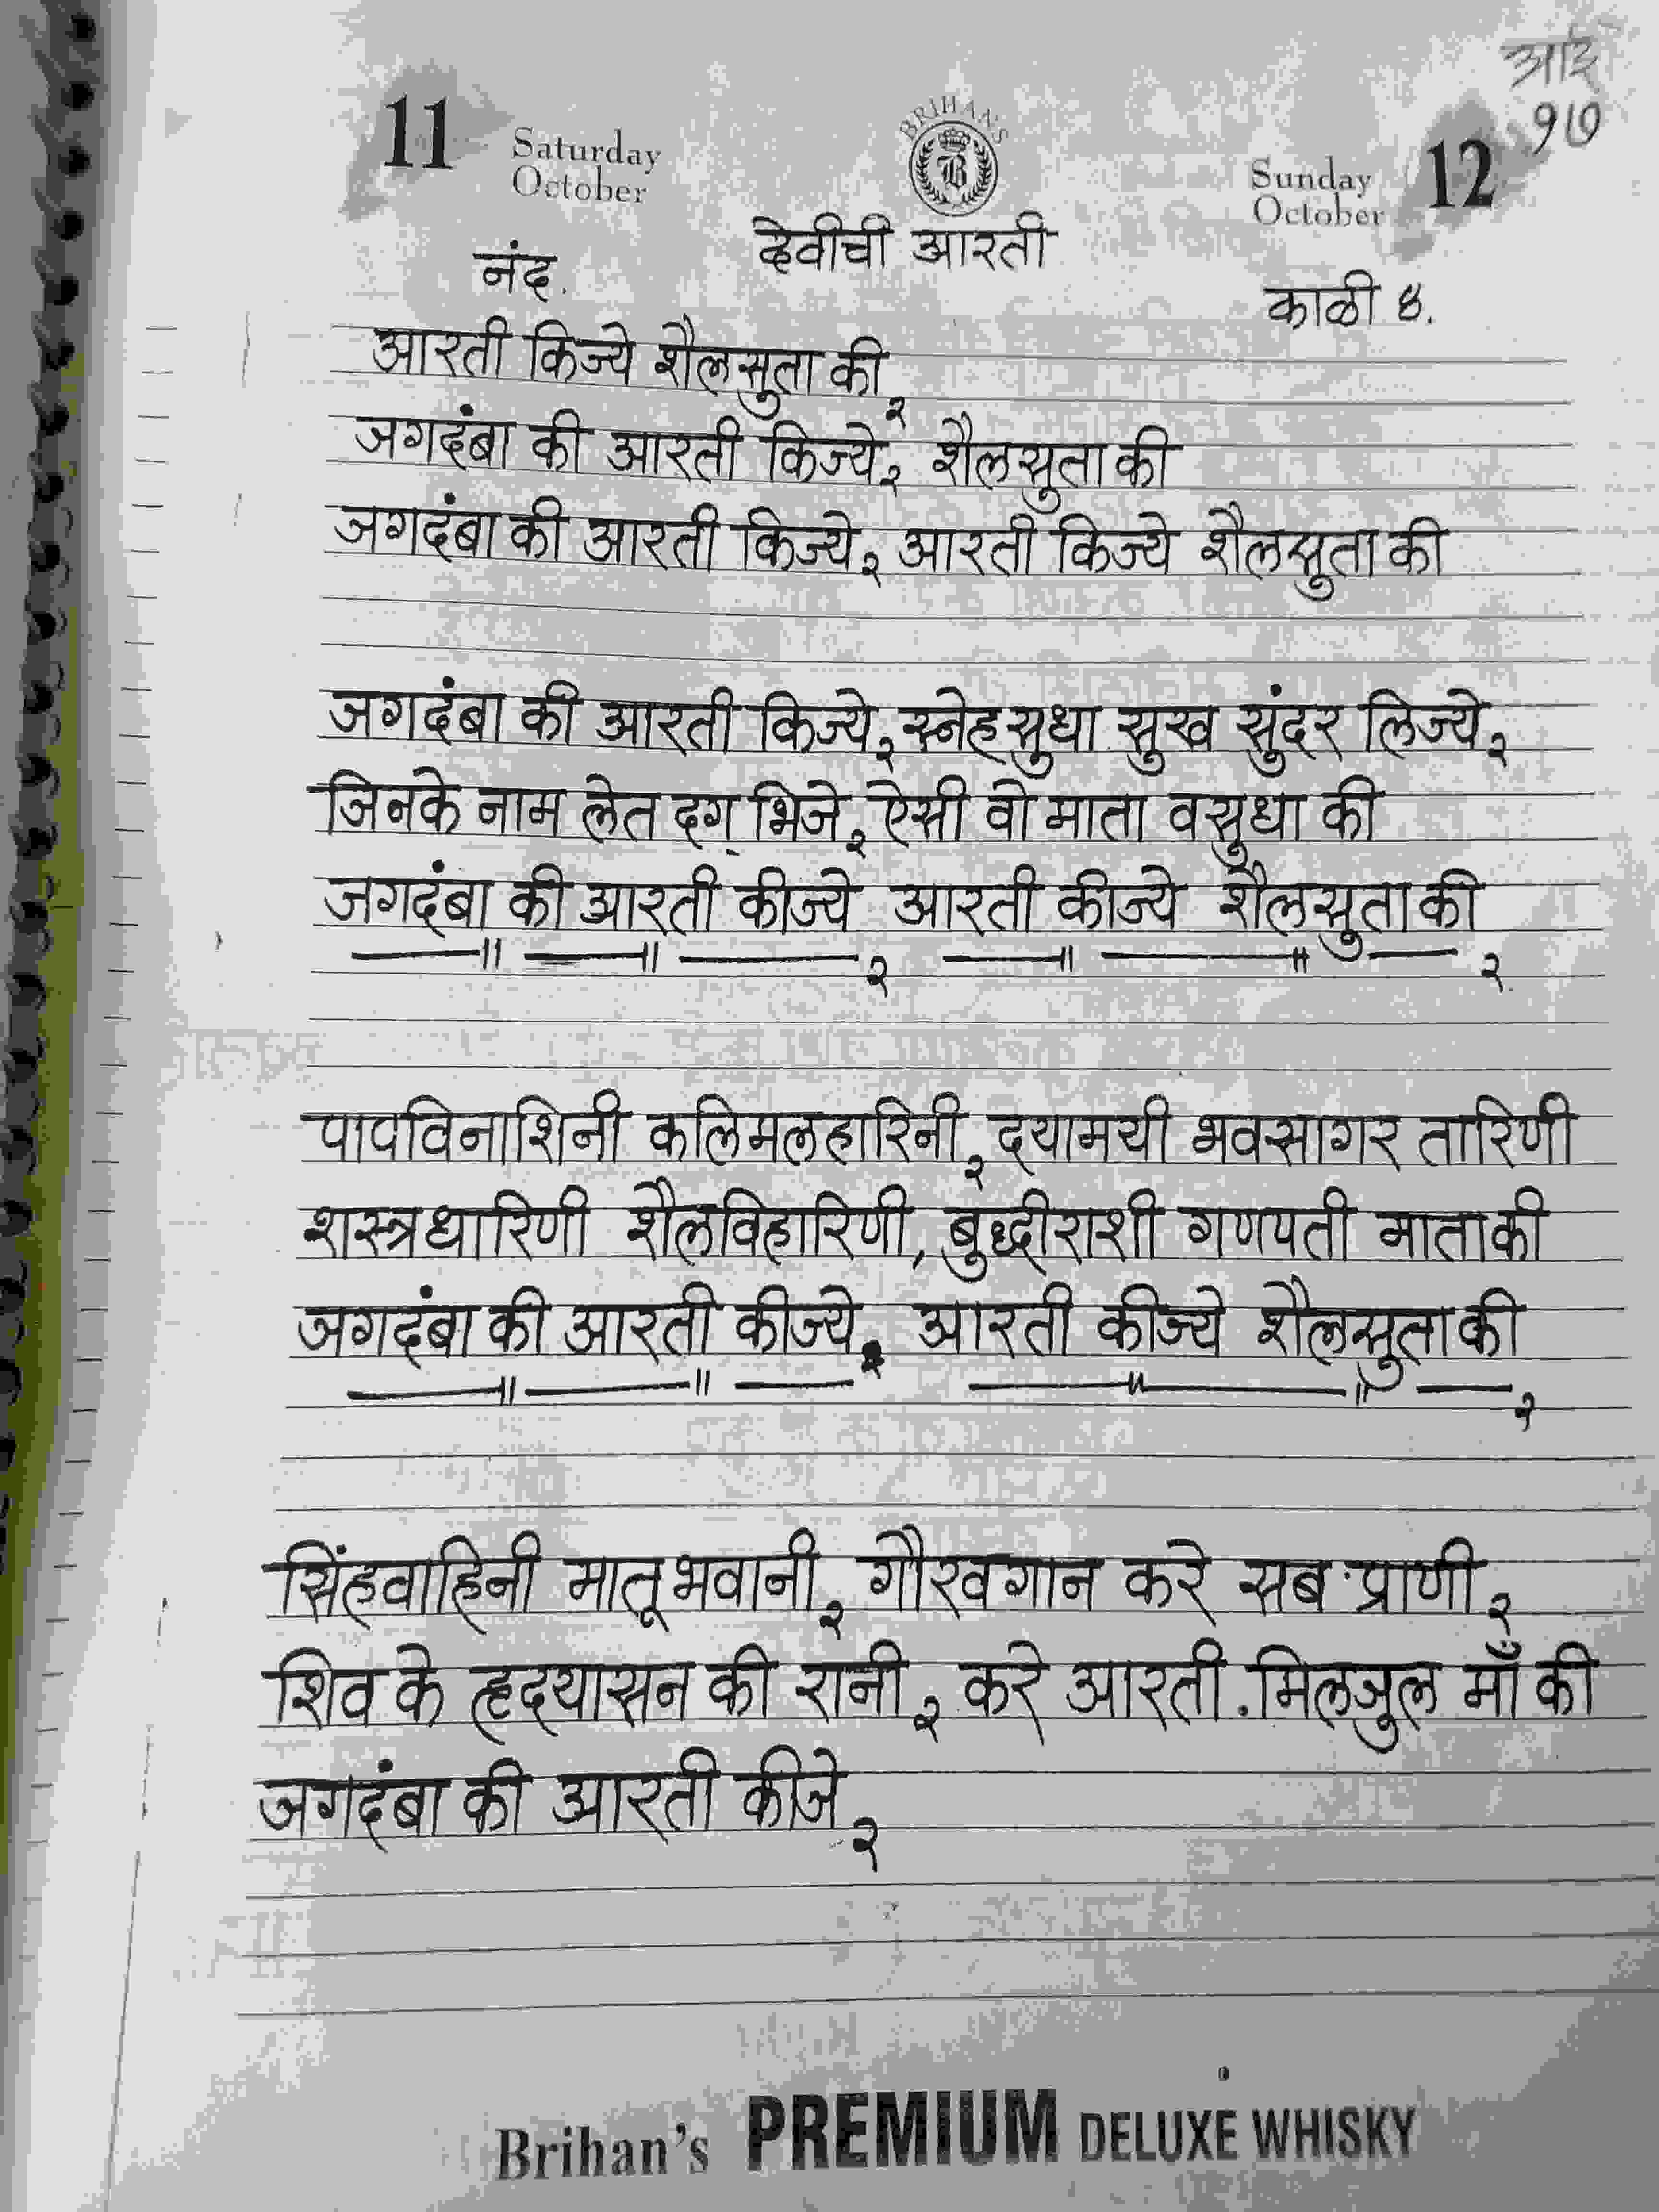 आई
१७
11 Saturday October
BRIHAN'S
B
Sunday October 12
देवीची आरती
नंद.
काळी ४.
आरती किज्ये शैलसुता की २
जगदंबा की आरती किज्ये २ शैलसुता की
जगदंबा की आरती किज्ये २ आरती किज्ये शैलसुता की
जगदंबा की आरती किज्ये २ स्नेहसुधा सुख सुंदर लिज्ये २
जिनके नाम लेत दग् भिजे २ ऐसी वो माता वसुधा की
जगदंबा की आरती कीज्ये आरती कीज्ये शैलसुता की
—॥—॥— २ —॥—॥— २
पापविनाशिनी कलिमलहारिनी २ दयामयी भवसागर तारिणी
शस्त्रधारिणी शैलविहारिणी, बुद्धीराशी गणपती माता की
जगदंबा की आरती कीज्ये २ आरती कीज्ये शैलसुता की
—॥—॥— —॥—॥— २
सिंहवाहिनी मातृभवानी २ गौरवगान करे सब प्राणी २
शिव के हृदयासन की रानी २ करे आरती . मिलजुल माँ की
जगदंबा की आरती कीजे २
Brihan's PREMIUM DELUXE WHISKY